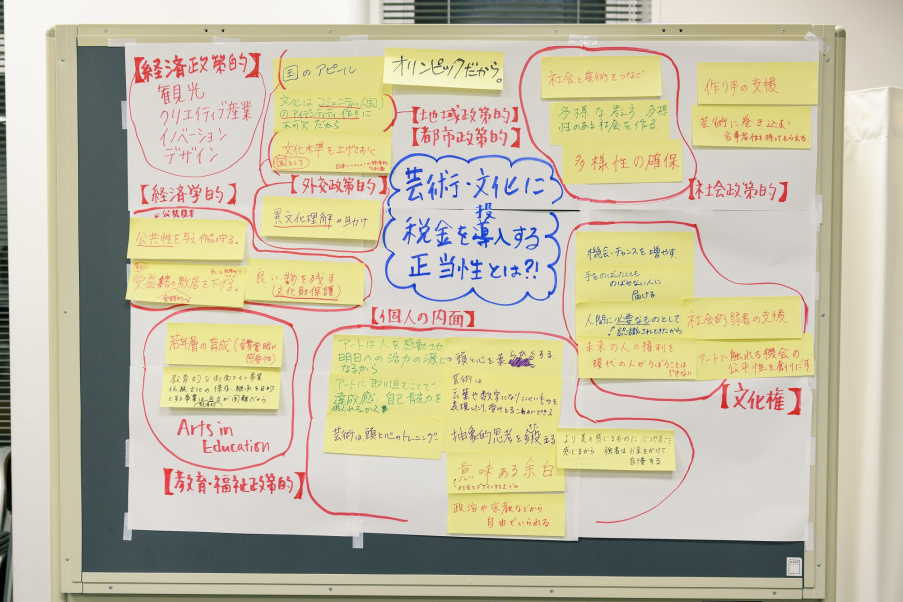 【経済政策的】
観見光
クリエイティブ産業
イノベーション
デザイン
国のアピール
文化はコミュニティー(国)
のアイデンティティ作りに
不可欠だから
文化水準を上げておく
国として
オリンピックだから。
【地域政策的】
【都市政策的】
【外交政策的】
異文化理解の助け
【経済学的】
公共財
公共性を
受益者の敷居を下げる。
良い物を残す
(文化財保護)
芸術・文化に
投
税金を導入する
正当性とは?!
社会と芸術をつなぐ
多様な考え方 多様
性のある社会を作る
多様性の確保
作り手の支援
芸術に巻き込む
当事者性を持ってもらえる
【社会政策的】
機会・チャンスを増やす
手をのばしたくとも
のばせない人に
届ける
人間に必要なものとして
認識されてきたから
未来の人の権利を
現代の人がうばうことは
できない
社会的弱者の支援
アートに触れる機会の
公平性を創りだす
【文化権】
【個人の内面】
アートは人を感動させ
明日への活力の源に
なるから
アートに取り組むことで
達成感、自己肯定力を
芸術は頭と心のトレーニング!!
頭と心を柔らかくする。
芸術は
言葉や数字になりにくいものを
表現したり、受けとる
抽象的思考を鍛える
意味ある余白
政治や宗教などから
自由でいられる
より美を感じるものに心地良さを
感じるから 強者はお金をかけて
自慢する
若年層の育成
Arts in
Education
【教育・福祉政策的】